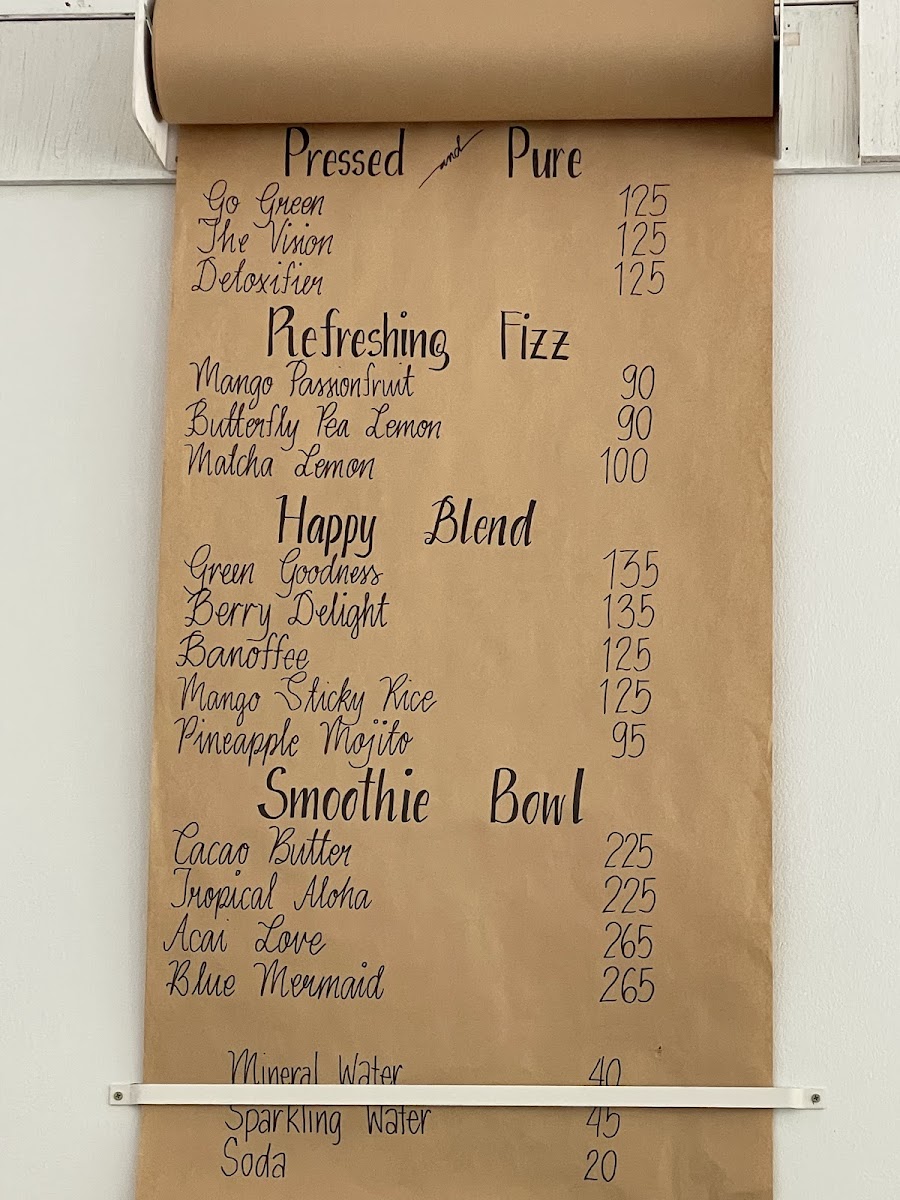 Pressed and Pure
Go Green 125
The Vision 125
Detoxifier 125
Refreshing Fizz
Mango Passionfruit 90
Butterfly Pea Lemon 90
Matcha Lemon 100
Happy Blend
Green Goodness 135
Berry Delight 135
Banoffee 125
Mango Sticky Rice 125
Pineapple Mojito 95
Smoothie Bowl
Cacao Butter 225
Tropical Aloha 225
Acai Love 265
Blue Mermaid 265
Mineral Water 40
Sparkling Water 45
Soda 20